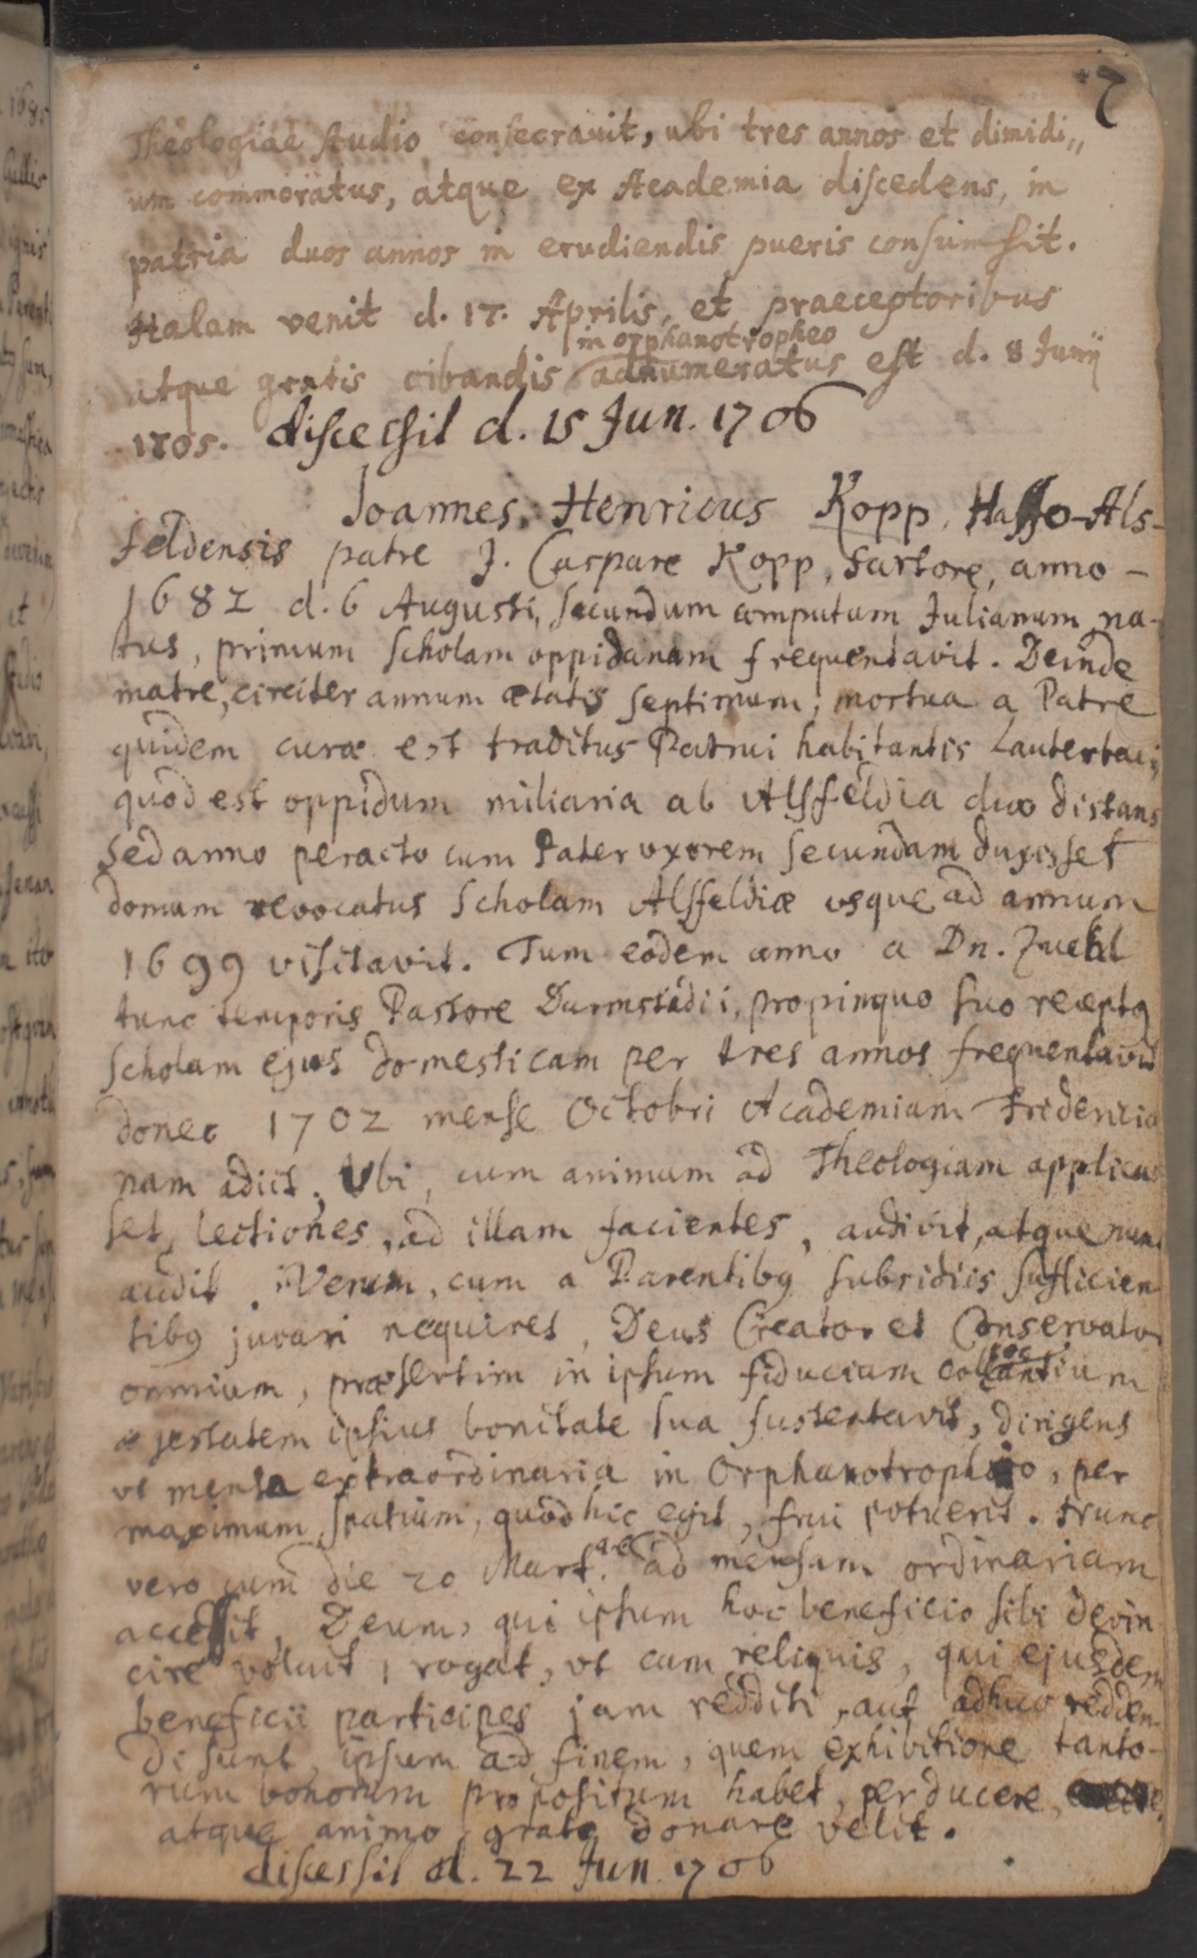 7
Theologiae studio consecravit, ubi tres annos et dimidi„
um commoratus, atque ex Academia discedens, in
patria duos annos in erudiendis pueris consumsit.
Halam venit d. 17. Aprilis, et praeceptoribus
in orphanotropheo
atque gratis cibandis adnumeratus est d. 8 Junij
1705. discessit d. 15 Jun. 1706
Joannes Henricus Kopp, Hasso-Als-
feldensis patre J. Caspare Kopp, sartore, anno –
1682 d. 6 Augusti, secundum computum Julianum na-
tus, primum scholam oppidanam frequentavit. Deinde
matre, circiter annum ætatis septimum, mortua a Patre
quidem curæ est traditus Patrui habitantis Lauterbaci,
quod est oppidum miliaria ab Alsfeldia duo distans
sed anno peracto cum Pater uxorem secundam duxisset
domum revocatus Scholam Alsfeldiæ usque ad annum
1699 visitavit. Tum eodem anno a Dn. Zuehl
tunc temporis Pastore Darmstadii, propinquo suo receptq
scholam ejus domesticam per tres annos frequentavit
donec 1702 mense Octobri Academiam Fridericia
nam adiit, Ubi, cum animum ad Theologiam applicas
set, lectiones, ad illam facientes, audivit, atque nunc
audit. Verum, cum a Parentibq subsidiis sufficien
tibq juvari nequiret, Deus Creator et Conservator
omnium, præsertim in ipsum fiduciam collocantium
egestatem ipsius bonitate sua sustentavit, dirigens
ut mensa extraordinaria in Orphanotropheo, per
maximum spatium, quod hic egit, frui potuerit. Nunc
vero cum die 20 Mart. ad mensam ordinariam
accessit, Deum, qui ipsum hoc beneficio sibi devin
cire voluit, rogat, ut cum reliquis, qui ejusdem
beneficii participes jam redditi, aut adhuc redden-
di sunt, ipsum ad finem, quem exhibitione tanto-
rum bonorum propositum habet, perducere,
atque animo grato donare velit.
discessit d. 22 Jun. 1706